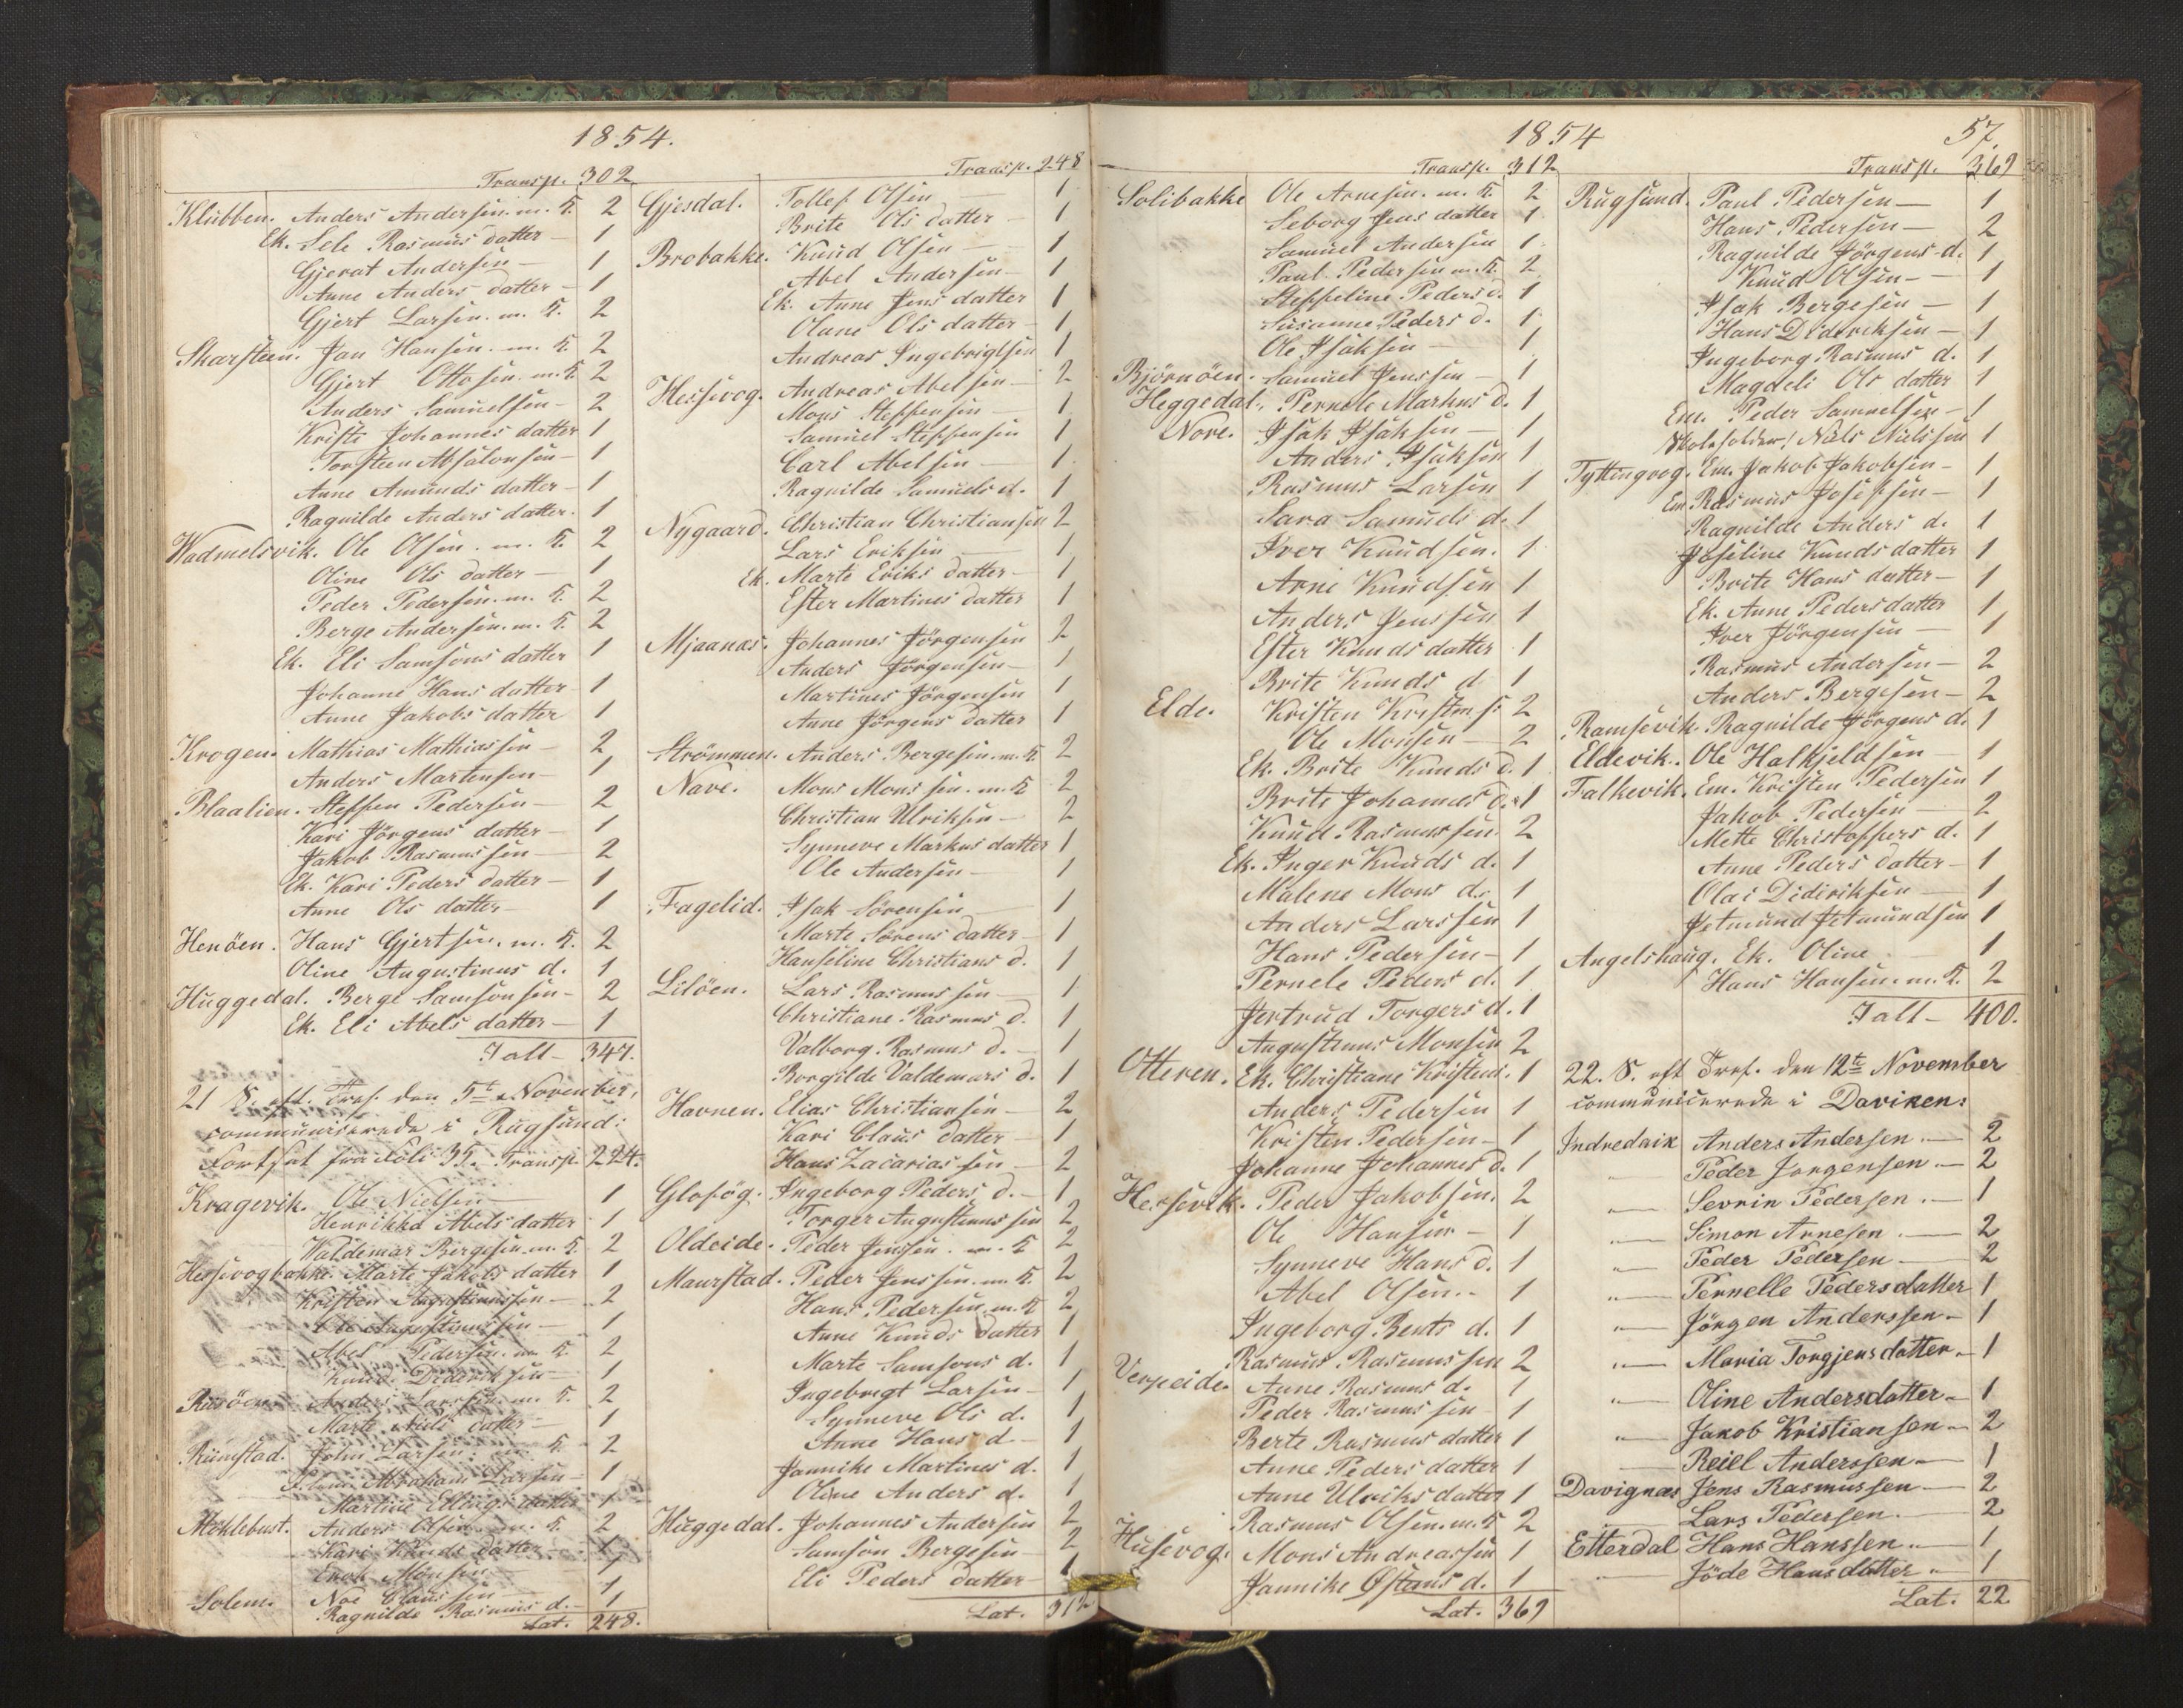 1854.
Transp. 302
Klubben. Anders Andersen. m. K. 2
Ek. Sele Rasmus datter — 1
Gjerat Andersen — 1
Anne Anders datter — 1
Gjert Larsen. m. K. 2
Skarsteen. Jan Hansen. m. K. 2
Gjert Ottosen. m. K. 2
Anders Samuelsen — 2
Kristi Johannes datter 1
Torsteen Absalonsen — 1
Anne Amunds datter — 1
Ragnilde Anders datter. 1
Wadmelsvik. Ole Olsen. m. K. 2
Oline Ols datter — 1
Peder Pedersen. m. K. 2
Berge Andersen. m. K. 2
Ek. Eli Samsons datter 1
Johanne Hans datter — 1
Anne Jakobs datter 1
Krogen. Mathias Mathiassen — 2
Anders Martensen — 1
Blaalien. Steffen Pedersen — 2
Kari Jörgens datter — 1
Jakob Rasmussen — 2
Ek. Kari Peders datter — 1
Anne Ols datter — 1
Henöen. Hans Gjertsen. m. K. 2
Oline Augustinus d. 1
Huggedal. Berge Samsonsen — 2
Ek. Eli Abels datter — 1
I alt — 347.
21 S. eft. Tref. den 5te November,
communicerede i Rugsund:
Fortsat fra Foli 35. Transp. 224.
Kragevik. Ole Nielsen — 1
Henrikka Abels datter 1
Valdemar Bergesen. m. K. 2
Hessevogbakke. Marte Jakobs datter 1
Kristen Augustinussen — 2
Ole Augustinussen — 1
Abel Pedersen. m. K. 2
Knud Dideriksen 1
Risöen. Anders Larssen. m. K. 2
Marte Nils datter — 1
Rimstad. John Larsen. m. K. 2
Abraham Larsen — 1
Martine Ellings datter 1
Möklebust. Anders Olsen. m. K. 2
Kari Knuds datter — 1
Enok Monsen 1
Solem. Noe Claussen 1
Ragnilde Rasmus d. — 1
Lat. 248.
Transp. 248
Gjesdal. Tollef Olsen — 1
Brite Ols datter — 1
Brobakke. Knud Olsen — 1
Abel Andersen — 1
Ek. Anne Jens datter 1
Olane Ols datter — 1
Andreas Ingebrigtsen 1
Hessevog. Andreas Abelsen — 2
Mons Steffensen — 1
Samuel Steffensen 1
Carl Abelsen — 1
Ragnilde Samuels d. 1
Nygaard. Christian Christiansen 2
Lars Eriksen — 1
Ek. Marte Eriks datter — 1
Ester Martines datter 1
Mjaanæs. Johannes Jörgensen 2
Anders Jörgensen — 1
Martines Jörgensen 1
Anne Jörgens datter 1
Strömmen. Anders Bergesen. m. K. 2
Nave. Mons Monssen. m. K 2
Christian Ulriksen — 2
Synneve Markus datter 1
Ole Andersen — 1
Fagelid. Isak Sörensen — 1
Marte Sörens datter — 1
Hanseline Christians d. 1
Lilöen. Lars Rasmussen — 1
Christiane Rasmus d. 1
Valborg Rasmus d. — 1
Borgilde Valdemars d. 1
Havnen. Elias Christiansen — 2
Kari Claus datter — 1
Hans Zacariassen — 2
Glosög. Ingeborg Peders d. — 1
Torger Augustinussen 2
Oldeide. Peder Jenssen. m. K 2
Maurstad. Peder Jenssen. m. K. 2
Hans Pedersen. m. K 2
Anne Knuds datter 1
Marte Samsons d. 1
Ingebregt Larsen — 1
Synneve Ols d. 1
Anne Hans d — 1
Jannike Martines d. 1
Oline Anders d. 1
Huggedal. Johannes Andersen 2
Samson Bergesen 2
Eli Peders datter — 1
Lat. 312
1854
57.
Transp. 312
Solibakke Ole Arnesen. m. K. 2
Seborg Jens datter 1
Samuel Andersen 1
Paul Pedersen m. K. 2
Steffeline Peders d. 1
Susanne Peders d. 1
Ole Isaksen — 1
Björnöen. Samuel Jenssen — 1
Heggedal. Pernele Markus d. 1
Nore. Isak Isaksen — 1
Anders Isaksen 1
Rasmus Larsen 1
Sara Samuels d. 1
Iver Knudsen. 1
Arne Knudsen 1
Anders Jenssen 1
Ester Knuds datter 1
Brite Knuds d 1
Elde. Kristen Kristens. 2
Ole Monsen — 2
Ek. Brite Knuds d. 1
Brite Johannes d. 1
Knud Rasmussen 2
Ek. Inger Knuds d. 1
Malene Mons d. 1
Anders Larssen 1
Hans Pedersen — 1
Pernele Peders d. 1
Jertrud Torgers d. 1
Augustinus Monsen 2
Otteren. Ek. Christiane Kristens. 1
Anders Pedersen 1
Kristen Pedersen — 1
Johanne Johannes d. 1
Hessevik. Peder Jakobsen. 2
Ole Hansen — 1
Synneve Hans d. 1
Abel Olsen. — 1
Ingeborg Bents d. 1
Rasmus Rasmussen 2
Verpeide. Anne Rasmus d. 1
Peder Rasmussen — 1
Berte Rasmus datter 1
Anne Peders datter 1
Anne Ulriks datter 1
Rasmus Olsen. m. K 2
Husevog. Mons Andreassen 1
Jannike Østens d. 1
Lat. 369
Transp. 369
Rugsund. Paul Pedersen — 1
Hans Pedersen — 2
Ragnilde Jörgens d. 1
Knud Olsen — 1
Isak Bergesen — 1
Hans Dideriksen — 1
Ingeborg Rasmus d. 1
Magdeli Ols datter 1
Em. Peder Samuelsen — 1
Skoleholder, Nils Nielssen 1
Tyttingvog. Em. Jakob Jakobsen — 1
Em Rasmus Josefsen — 1
Ragnilde Anders d. 1
Joseline Knuds datter 1
Brite Hans datter — 1
Ek. Anne Peders datter 1
Iver Jörgensen — 1
Rasmus Andersen — 2
Anders Bergesen — 2
Ramsevik. Ragnilde Jörgens d. 1
Eldevik. Ole Halkjeldsen — 1
Falkevik. Em. Kristen Pedersen 1
Jakob Pedersen — 2
Mette Christoffers d. 1
Anne Peders datter — 1
Olai Dideriksen — 1
Jetmund Jetmundsen 1
Angelshaug. Ek. Oline 1
Hans Hansen. m. K. 2
I alt — 400.
22. S. eft Tref. den 12te November
communicerede i Daviken:
Indredaik Anders Andersen. — 2
„— Peder Jorgensen. — 2
„— Sevrin Pedersen. — 1
„— Simon Arnesen. — 2
„— Peder Pedersen — 2
„— Pernelle Pedersdatter 1
„— Jörgen Anderssen — 1
„— Maria Torgjersdatter — 1
„— Oline Andersdatter — 1
„— Jakob Kristiansen — 2
— Reiel Anderssen — 1
Davignæs Jens Rasmussen — 2
— Lars Pedersen. — 2
Etterdal Hans Hanssen — 1
— Jöde Hansdatter — 1
Lat. 22